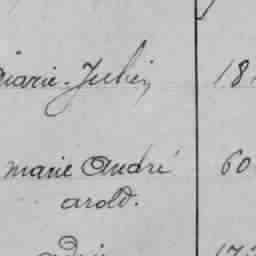 marie Julien 18
marie André 60
arold.